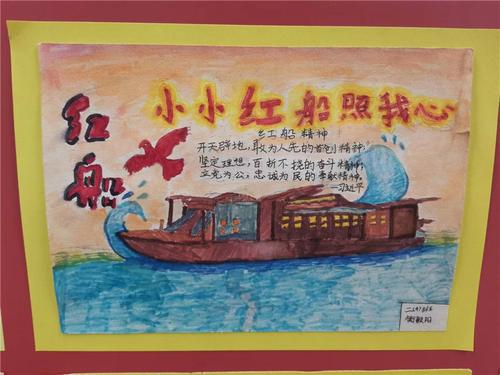 小小红船照我心
红船
红船精神
开天辟地，敢为人先的首创精神；
坚定理想，百折不挠的奋斗精神；
立党为公，忠诚为民的奉献精神。
—习近平